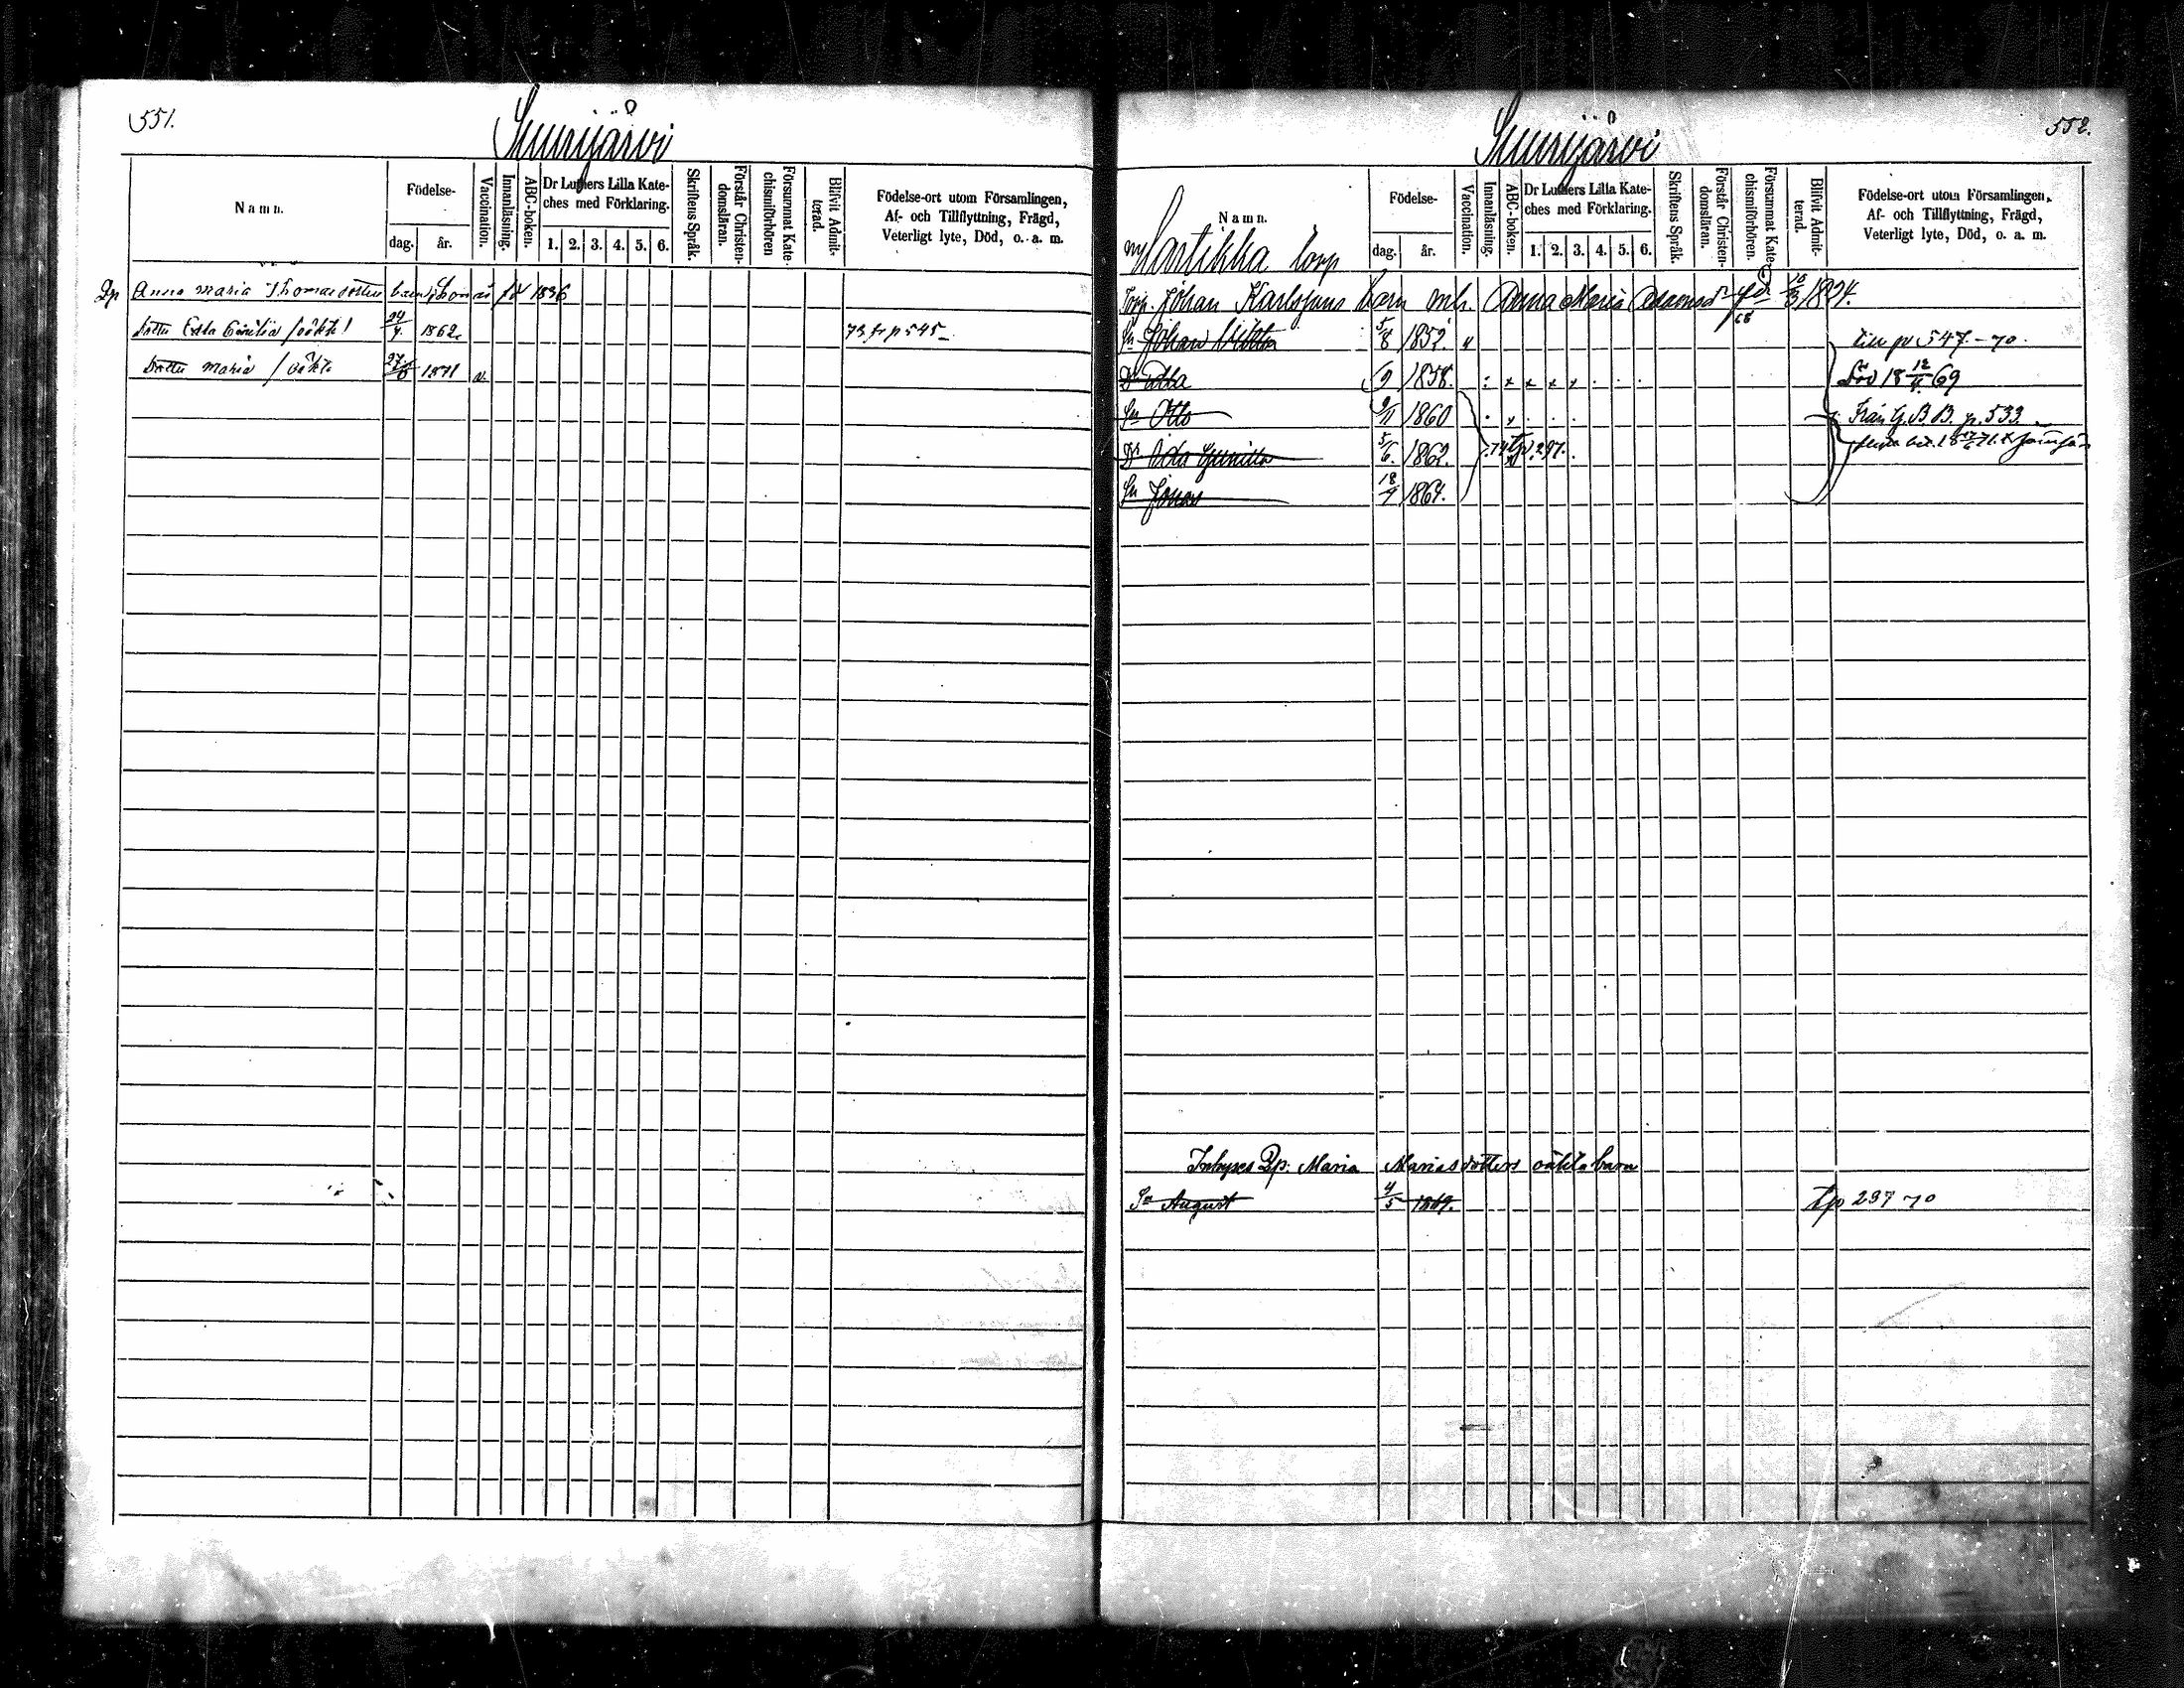 551.
Suurijärvi
Namn.
Födelse-
dag.
år.
Vaccination.
Innanläsning.
ABC-boken.
Dr Luthers Lilla Kate-
ches med Förklaring.
1. 2. 3. 4. 5. 6.
Skriftens Språk.
Förstår Christen-
domsläran.
Försummat Kate-
chismiförhören
Blifvit Admit-
terad.
Födelse-ort utom Församlingen,
Af- och Tillflyttning, Frägd,
Veterligt lyte, Död, o. a. m.
Dp Anna Maria Thomasdotter barn fd 1836
Dotter Eda Emilia /oäkta/ 24/4 1862 73 fr p 545
Dotter Maria /oäkta 1871 v.
552.
Suurijärvi
Namn.
Martikka torp
Födelse-
dag.
år.
Vaccination.
Innanläsning.
ABC-boken.
Dr Luthers Lilla Kate-
ches med Förklaring.
1. 2. 3. 4. 5. 6.
Skriftens Språk.
Förstår Christen-
domsläran.
Försummat Kate-
chismiförhören.
Blifvit Admit-
terad.
Födelse-ort utom Församlingen,
Af- och Tillflyttning, Frägd,
Veterligt lyte, Död, o. a. m.
Torp. Johan Karlssons barn Anna Maria 1824.
Sn Johan 5/8 1852. till p 547.-70.
Dr Ulla 9 1858. Död 18 12/4 69
Sn Otto 9/11 1860 Från Y.B.B. p. 533
Dr Ida 5/6 1862. 74 tp. 297.
Sn Jonas 18/4 1864.
Inhyses Dp. Maria Mariasdotters oäkta barn
Sn August 4/5 1869. tp 297 70